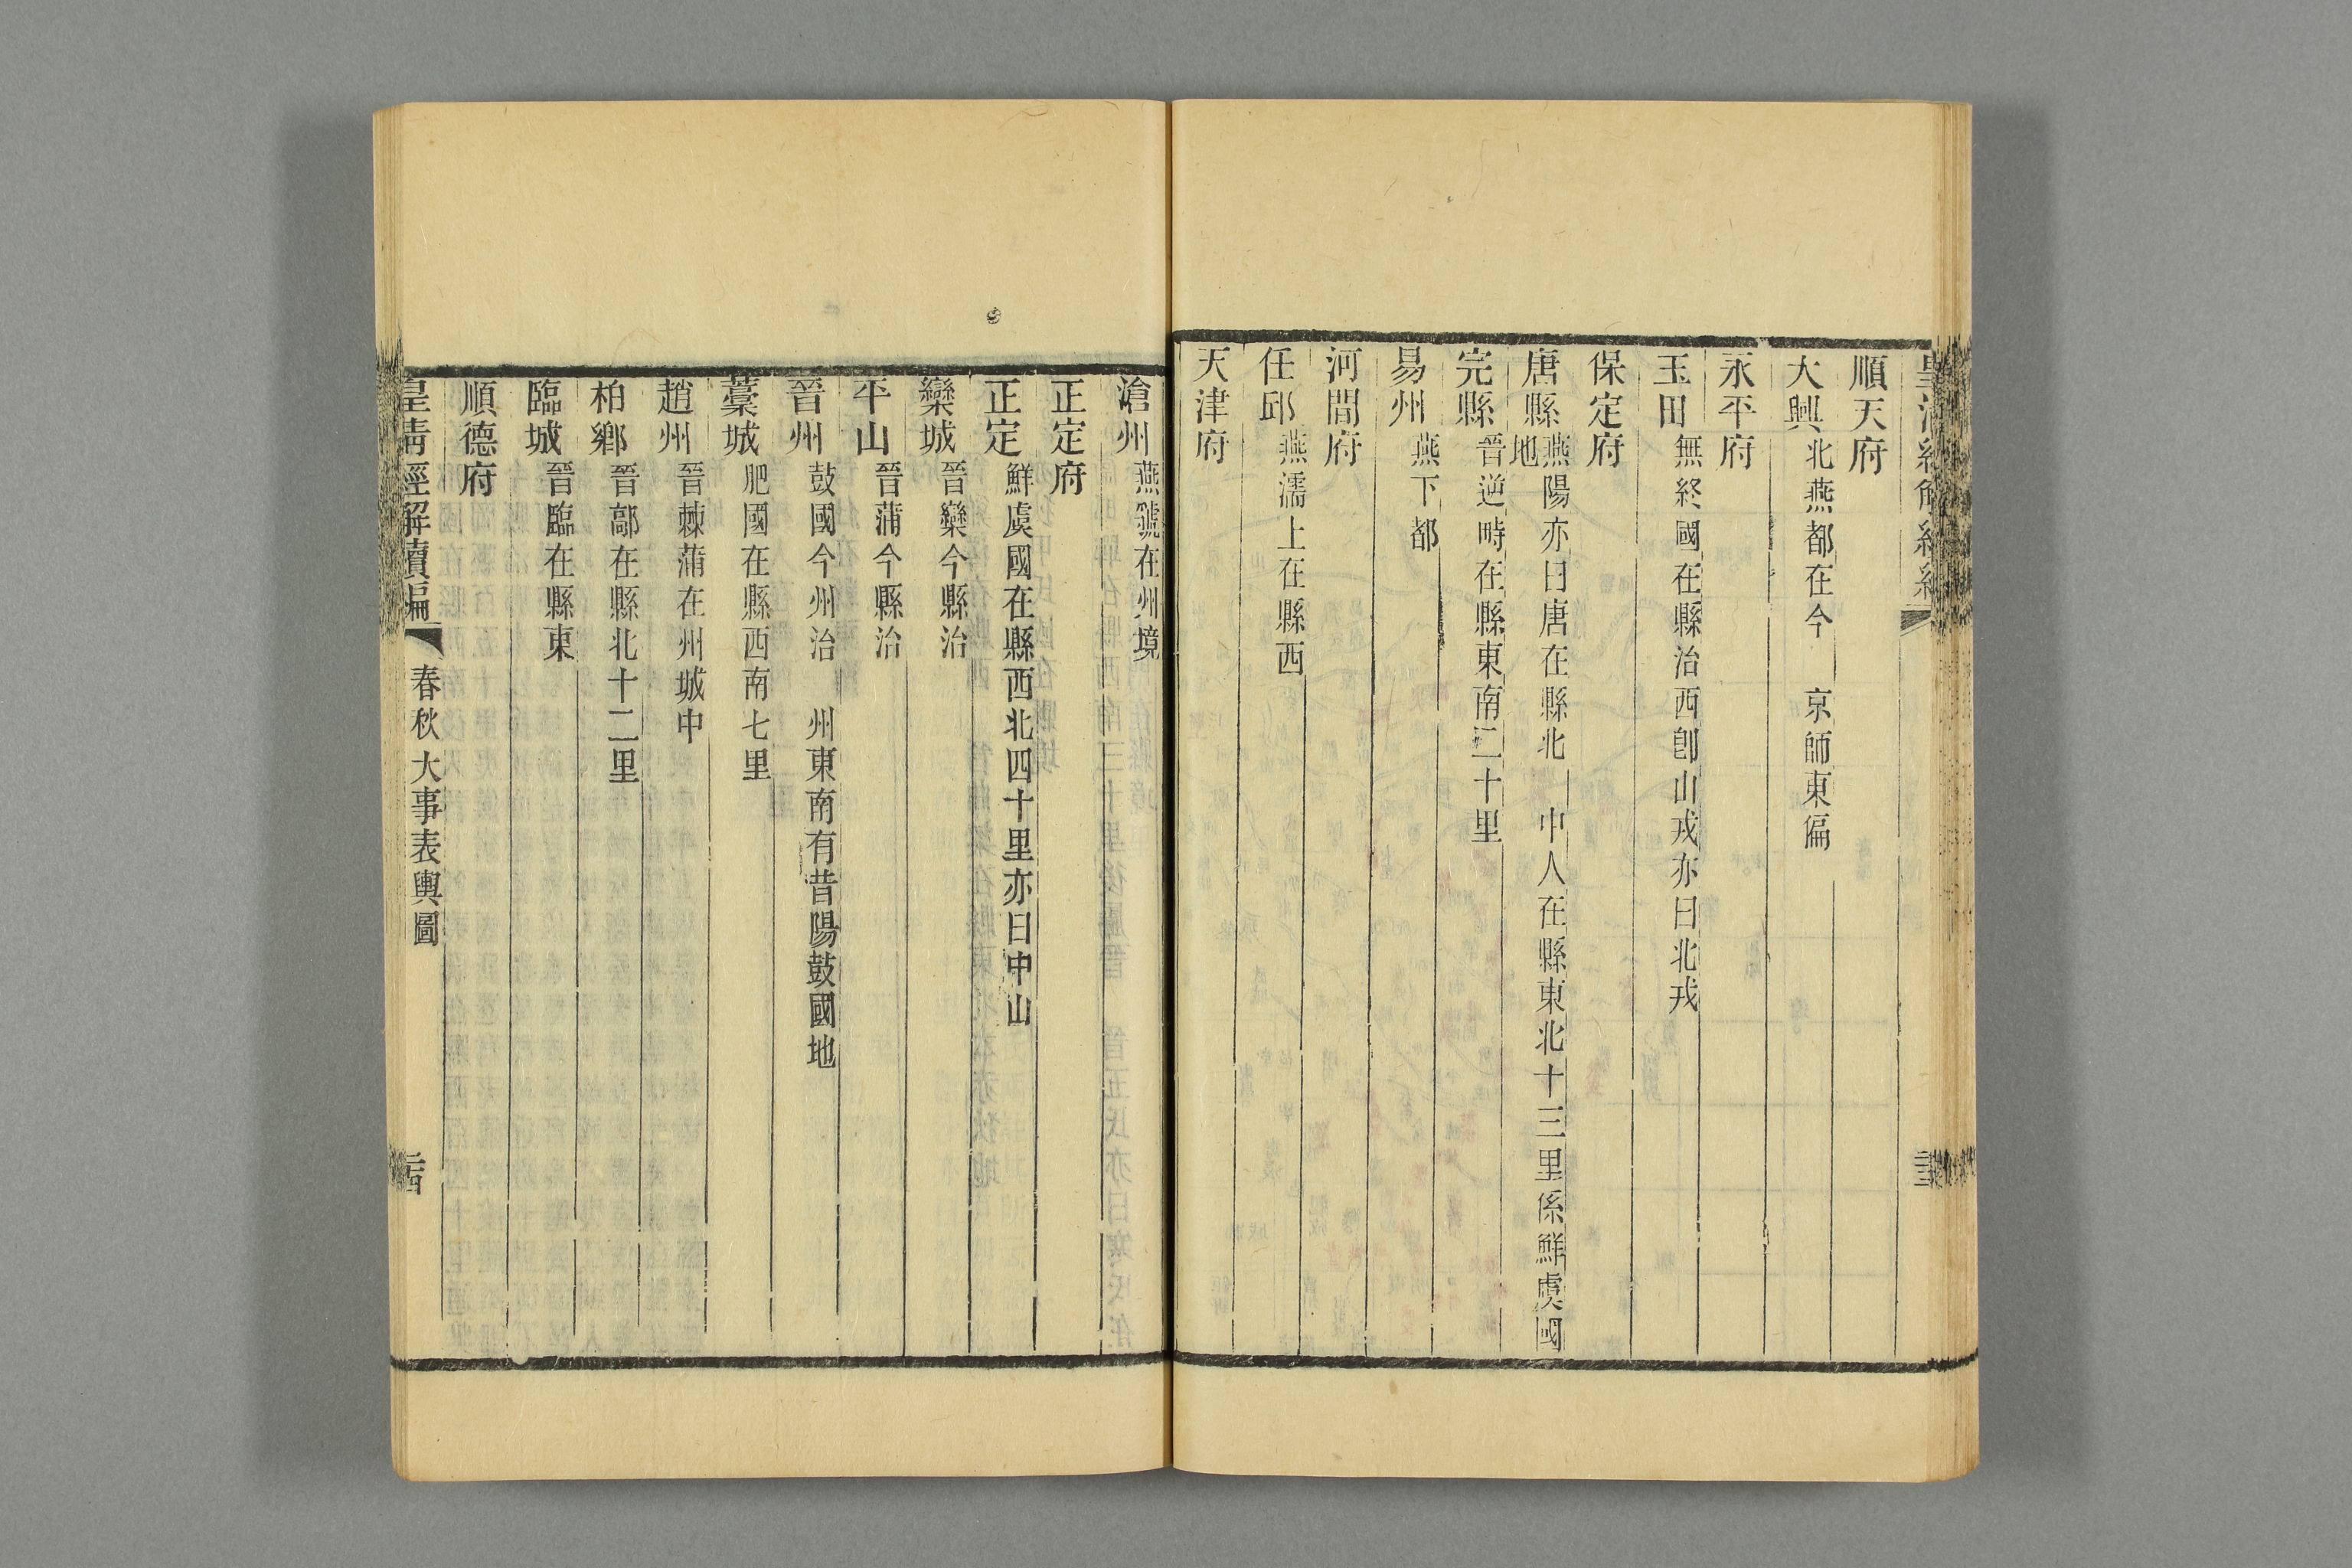 順天府
大興 北燕都在今 京師東偏
永平府
玉田 無終國在縣治西卽山戎亦曰北戎
保定府
唐縣 燕陽亦曰唐在縣北 中人在縣東北十三里係鮮虞國
地
完縣 晉逆畤在縣東南二十里
易州 燕下都
河間府
任邱 燕濡上在縣西
天津府
滄州 燕虢在州境
正定府
正定 鮮虞國在縣西北四十里亦曰中山
欒城 晉欒今縣治
平山 晉蒲今縣治
晉州 鼓國今州治 州東南有昔陽鼓國地
藁城 肥國在縣西南七里
趙州 晉棘蒲在州城中
柏鄉 晉鄗在縣北十二里
臨城 晉臨在縣東
順德府
皇清經解續編 春秋大事表輿圖